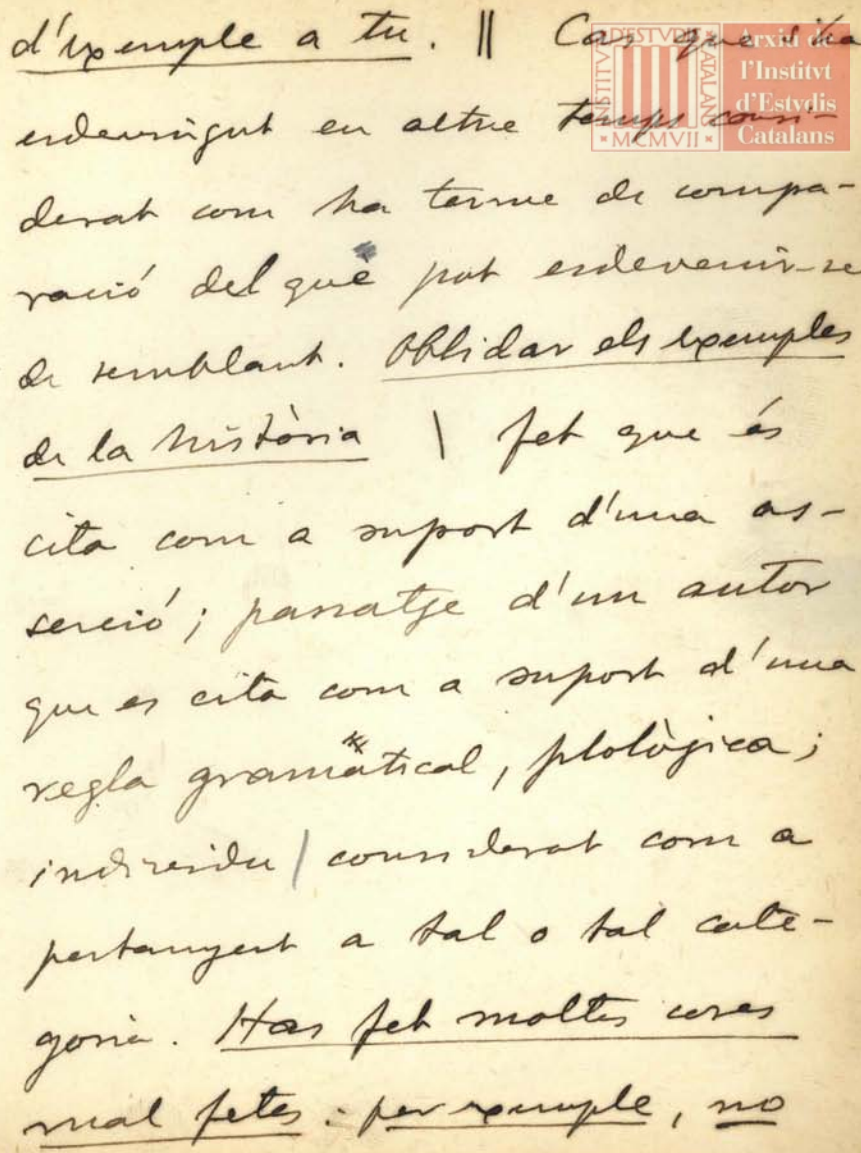 d'exemple a tu. || Cas que s'ha
esdevingut en altre temps consi-
derat com ha terme de compa-
ració del què pot esdevenir-se
de semblant. Oblidar els exemples
de la història | fet que és
cita com a suport d'una as-
serció; passatge d'un autor
que es cita com a suport d'una
regla gramatical, filològica;
individu / considerat com a
pertanyent a tal o tal cate-
goria. Has fet moltes coses
mal fetes: per exemple, no
INSTITVT D'ESTVDIS CATALANS
MCMVII
Arxiu de
l'Institvt
d'Estvdis
Catalans